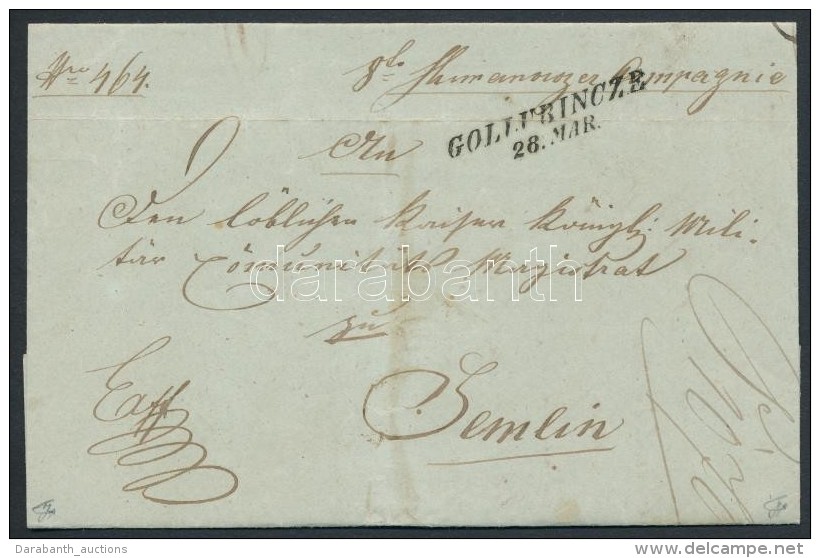 Nro 464.
8te Simanovzer Compagnie
GOLLUBINCZE
28. MAR.
An
Den löblichen Kaiser Königl: Mili-
tär Comunitäts Magistrat
zu
Semlin
darabanth
Darabanth_auctions
www.delcampe.net